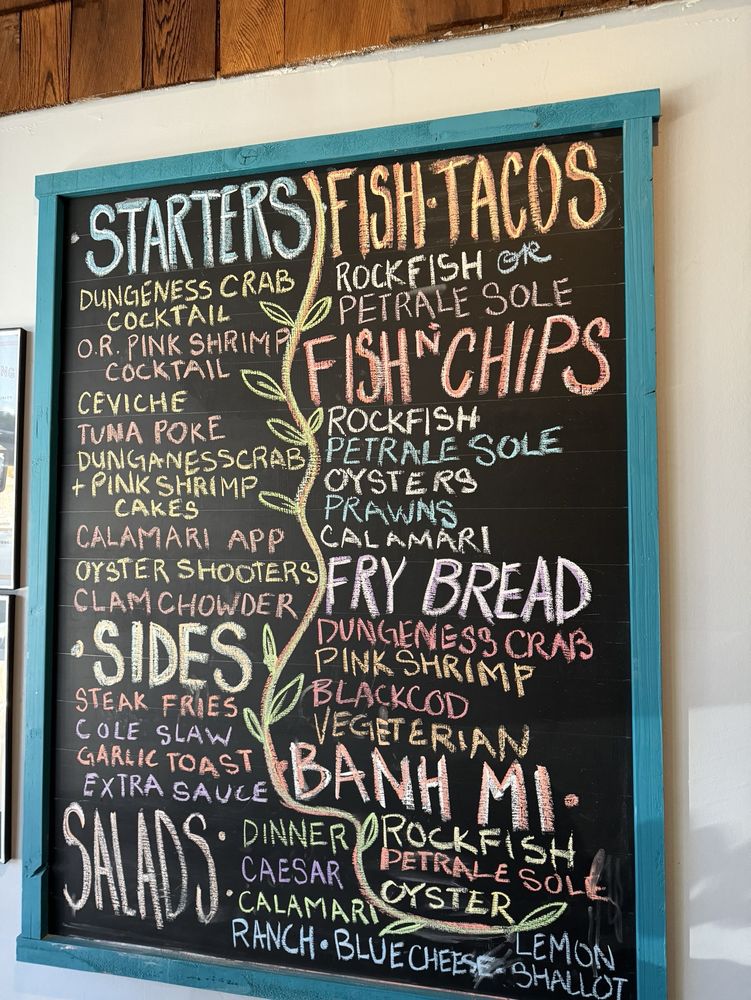 STARTERS
DUNGENESS CRAB
COCKTAIL
O.R. PINK SHRIMP
COCKTAIL
CEVICHE
TUNA POKE
DUNGANESSCRAB
+ PINK SHRIMP
CAKES
CALAMARI APP
OYSTER SHOOTERS
CLAM CHOWDER
• SIDES
STEAK FRIES
COLE SLAW
GARLIC TOAST
EXTRA SAUCE
SALADS •
DINNER
CAESAR
CALAMARI
RANCH • BLUE CHEESE • LEMON
SHALLOT
FISH • TACOS
ROCKFISH OR
PETRALE SOLE
FISH N' CHIPS
ROCKFISH
PETRALE SOLE
OYSTERS
PRAWNS
CALAMARI
FRY BREAD
DUNGENESS CRAB
PINK SHRIMP
BLACKCOD
VEGETERIAN
BANH MI •
ROCKFISH
PETRALE SOLE
OYSTER